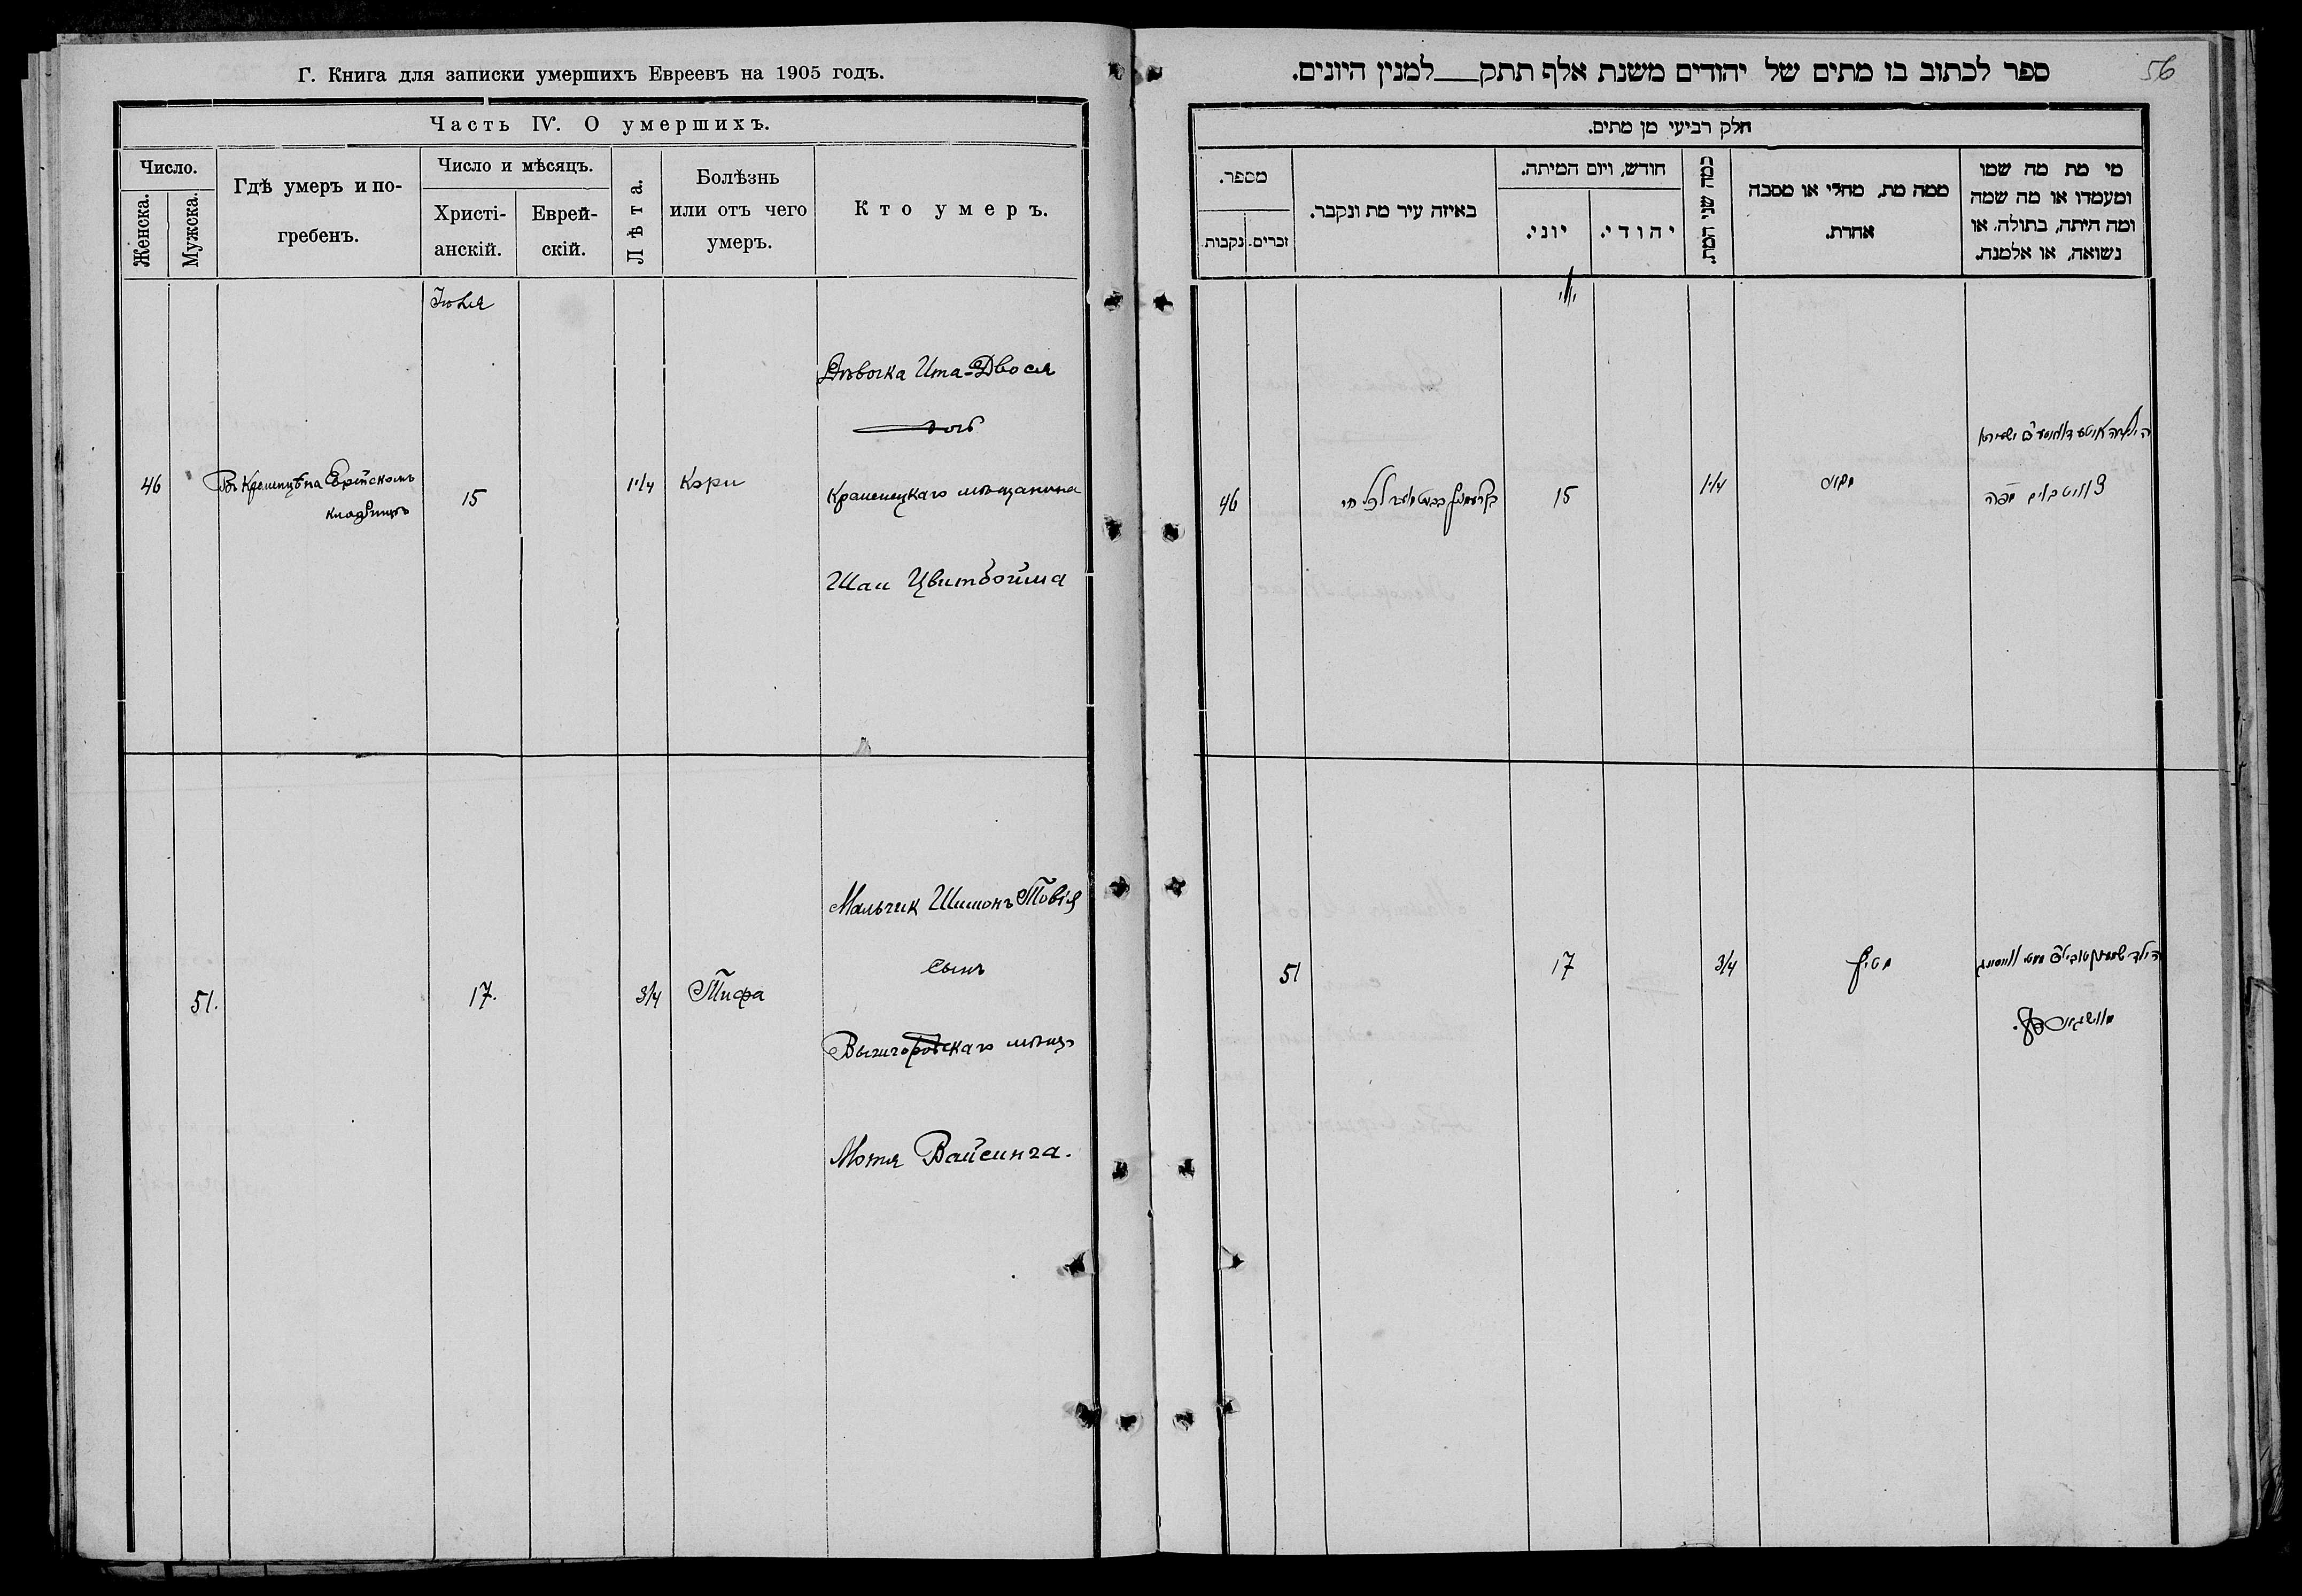 Г. Книга для записки умершихъ Евреевъ на 1905 годъ.
Часть IV. О умершихъ.
Число.
Женска.
Мужска.
Гдѣ умеръ и по-
гребенъ.
Число и мѣсяцъ.
Христі-
анскій.
Еврей-
скій.
Лѣта.
Болѣзнь
или отъ чего
умеръ.
Кто умеръ.
Іюля
46
Въ Кременцѣ на
кладбищѣ
15
1 1/4
Кори
Дѣвочка Ита-Двося
дочь
Кременецкаго мѣщанина
Шаи Цвитбойма
51.
17.
3/4
Тифа
Мальчик Шимонъ Товія
сынъ
Вышгородскаго мѣщ
Мотя Вайсинга.
56
ספר לכתוב בו מתים של יהודים משנת אלף תתק___למנין היונים.
חלק רביעי מן מתים.
מספר.
נקבות.
זכרים.
באיזה עיר מת ונקבר.
חודש, ויום המיתה.
יוני.
יהודי.
כמה שני המת.
ממה מת, מחלי או מסבה
אחרת.
מי מת מה שמו
ומעמדו או מה שמה
ומה היתה, בתולה, או
נשואה, או אלמנה.
46
15
1 1/4
51
17
3/4